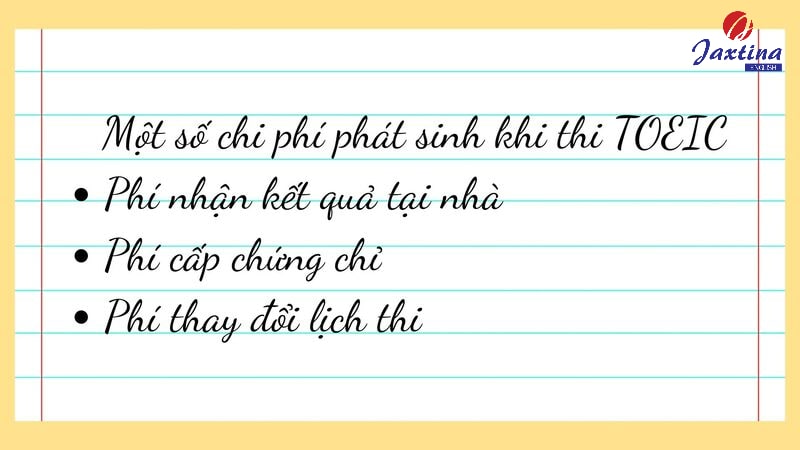 Jaxtina
ENGLISH
Một số chi phí phát sinh khi thi TOEIC
• Phí nhận kết quả tại nhà
• Phí cấp chứng chỉ
• Phí thay đổi lịch thi